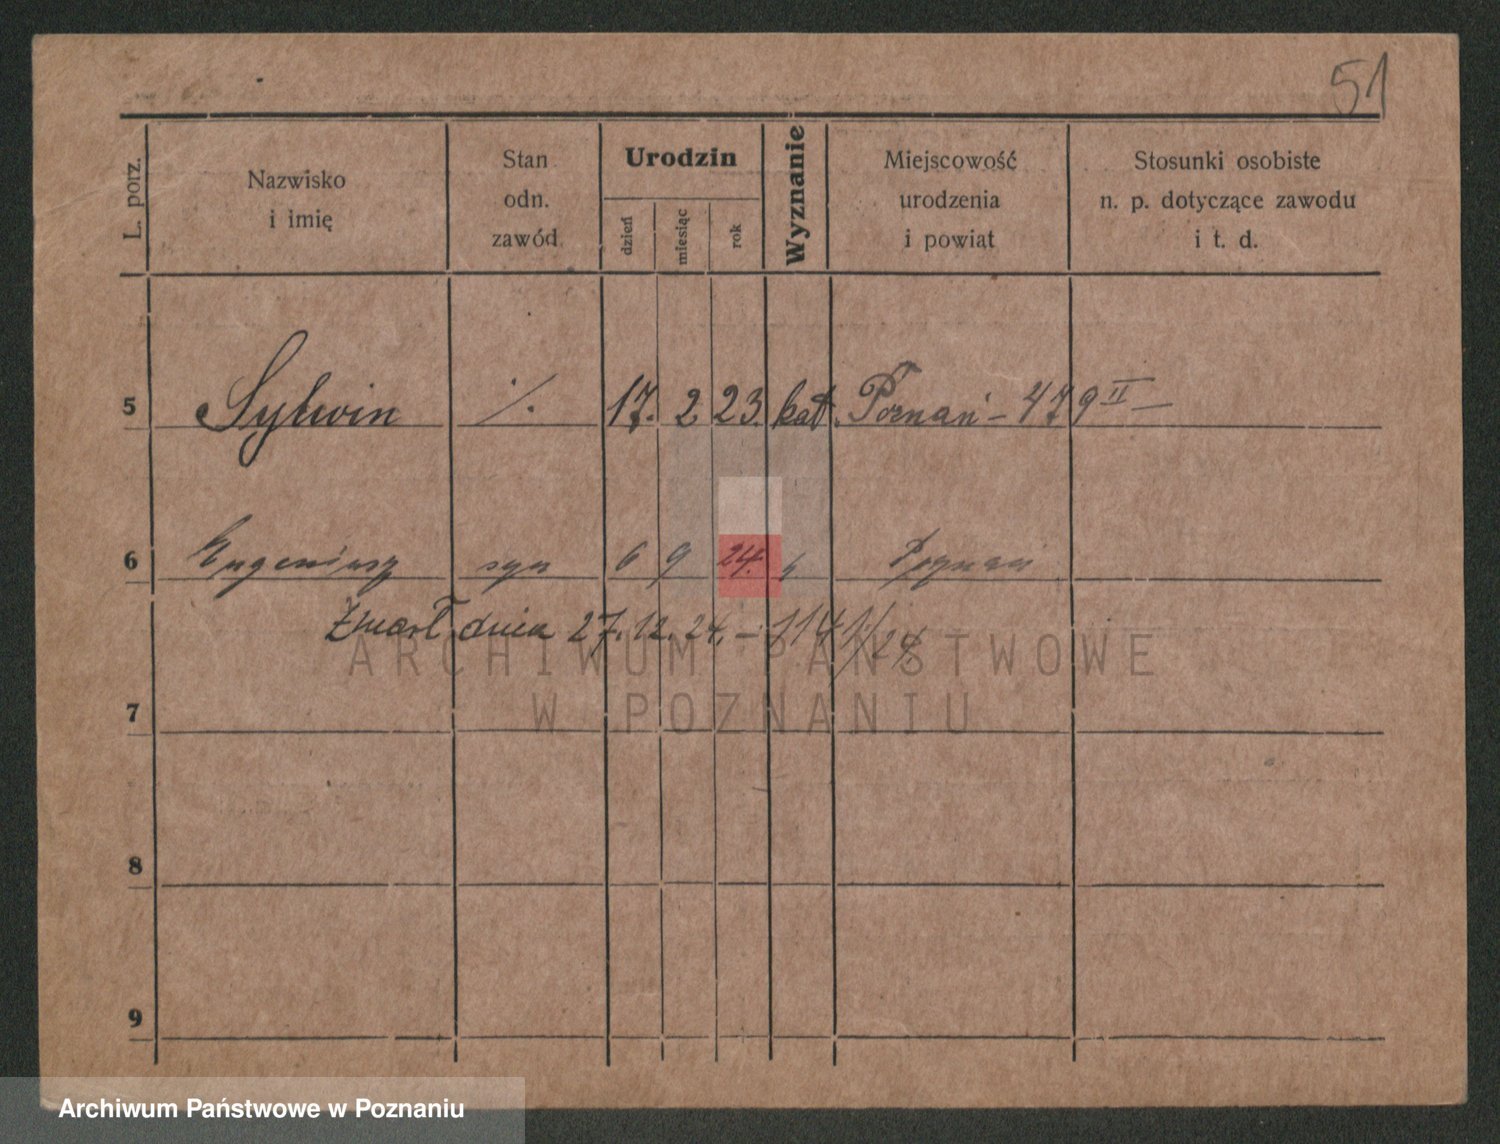 51
L. porz.
Nazwisko
i imię
Stan
odn.
zawód
Urodzin
dzień
miesiąc
rok
Wyznanie
Miejscowość
urodzenia
i powiat
Stosunki osobiste
n. p. dotyczące zawodu
i t. d.
5 Sylwin ./. 17. 2 23. kat. Poznań – 479 II –
6 Eugeniusz syn 6 9 24. Poznań
Zmarł dnia 27.12.24. –
ARCHIWUM PAŃSTWOWE
W POZNANIU
7
8
9
Archiwum Państwowe w Poznaniu